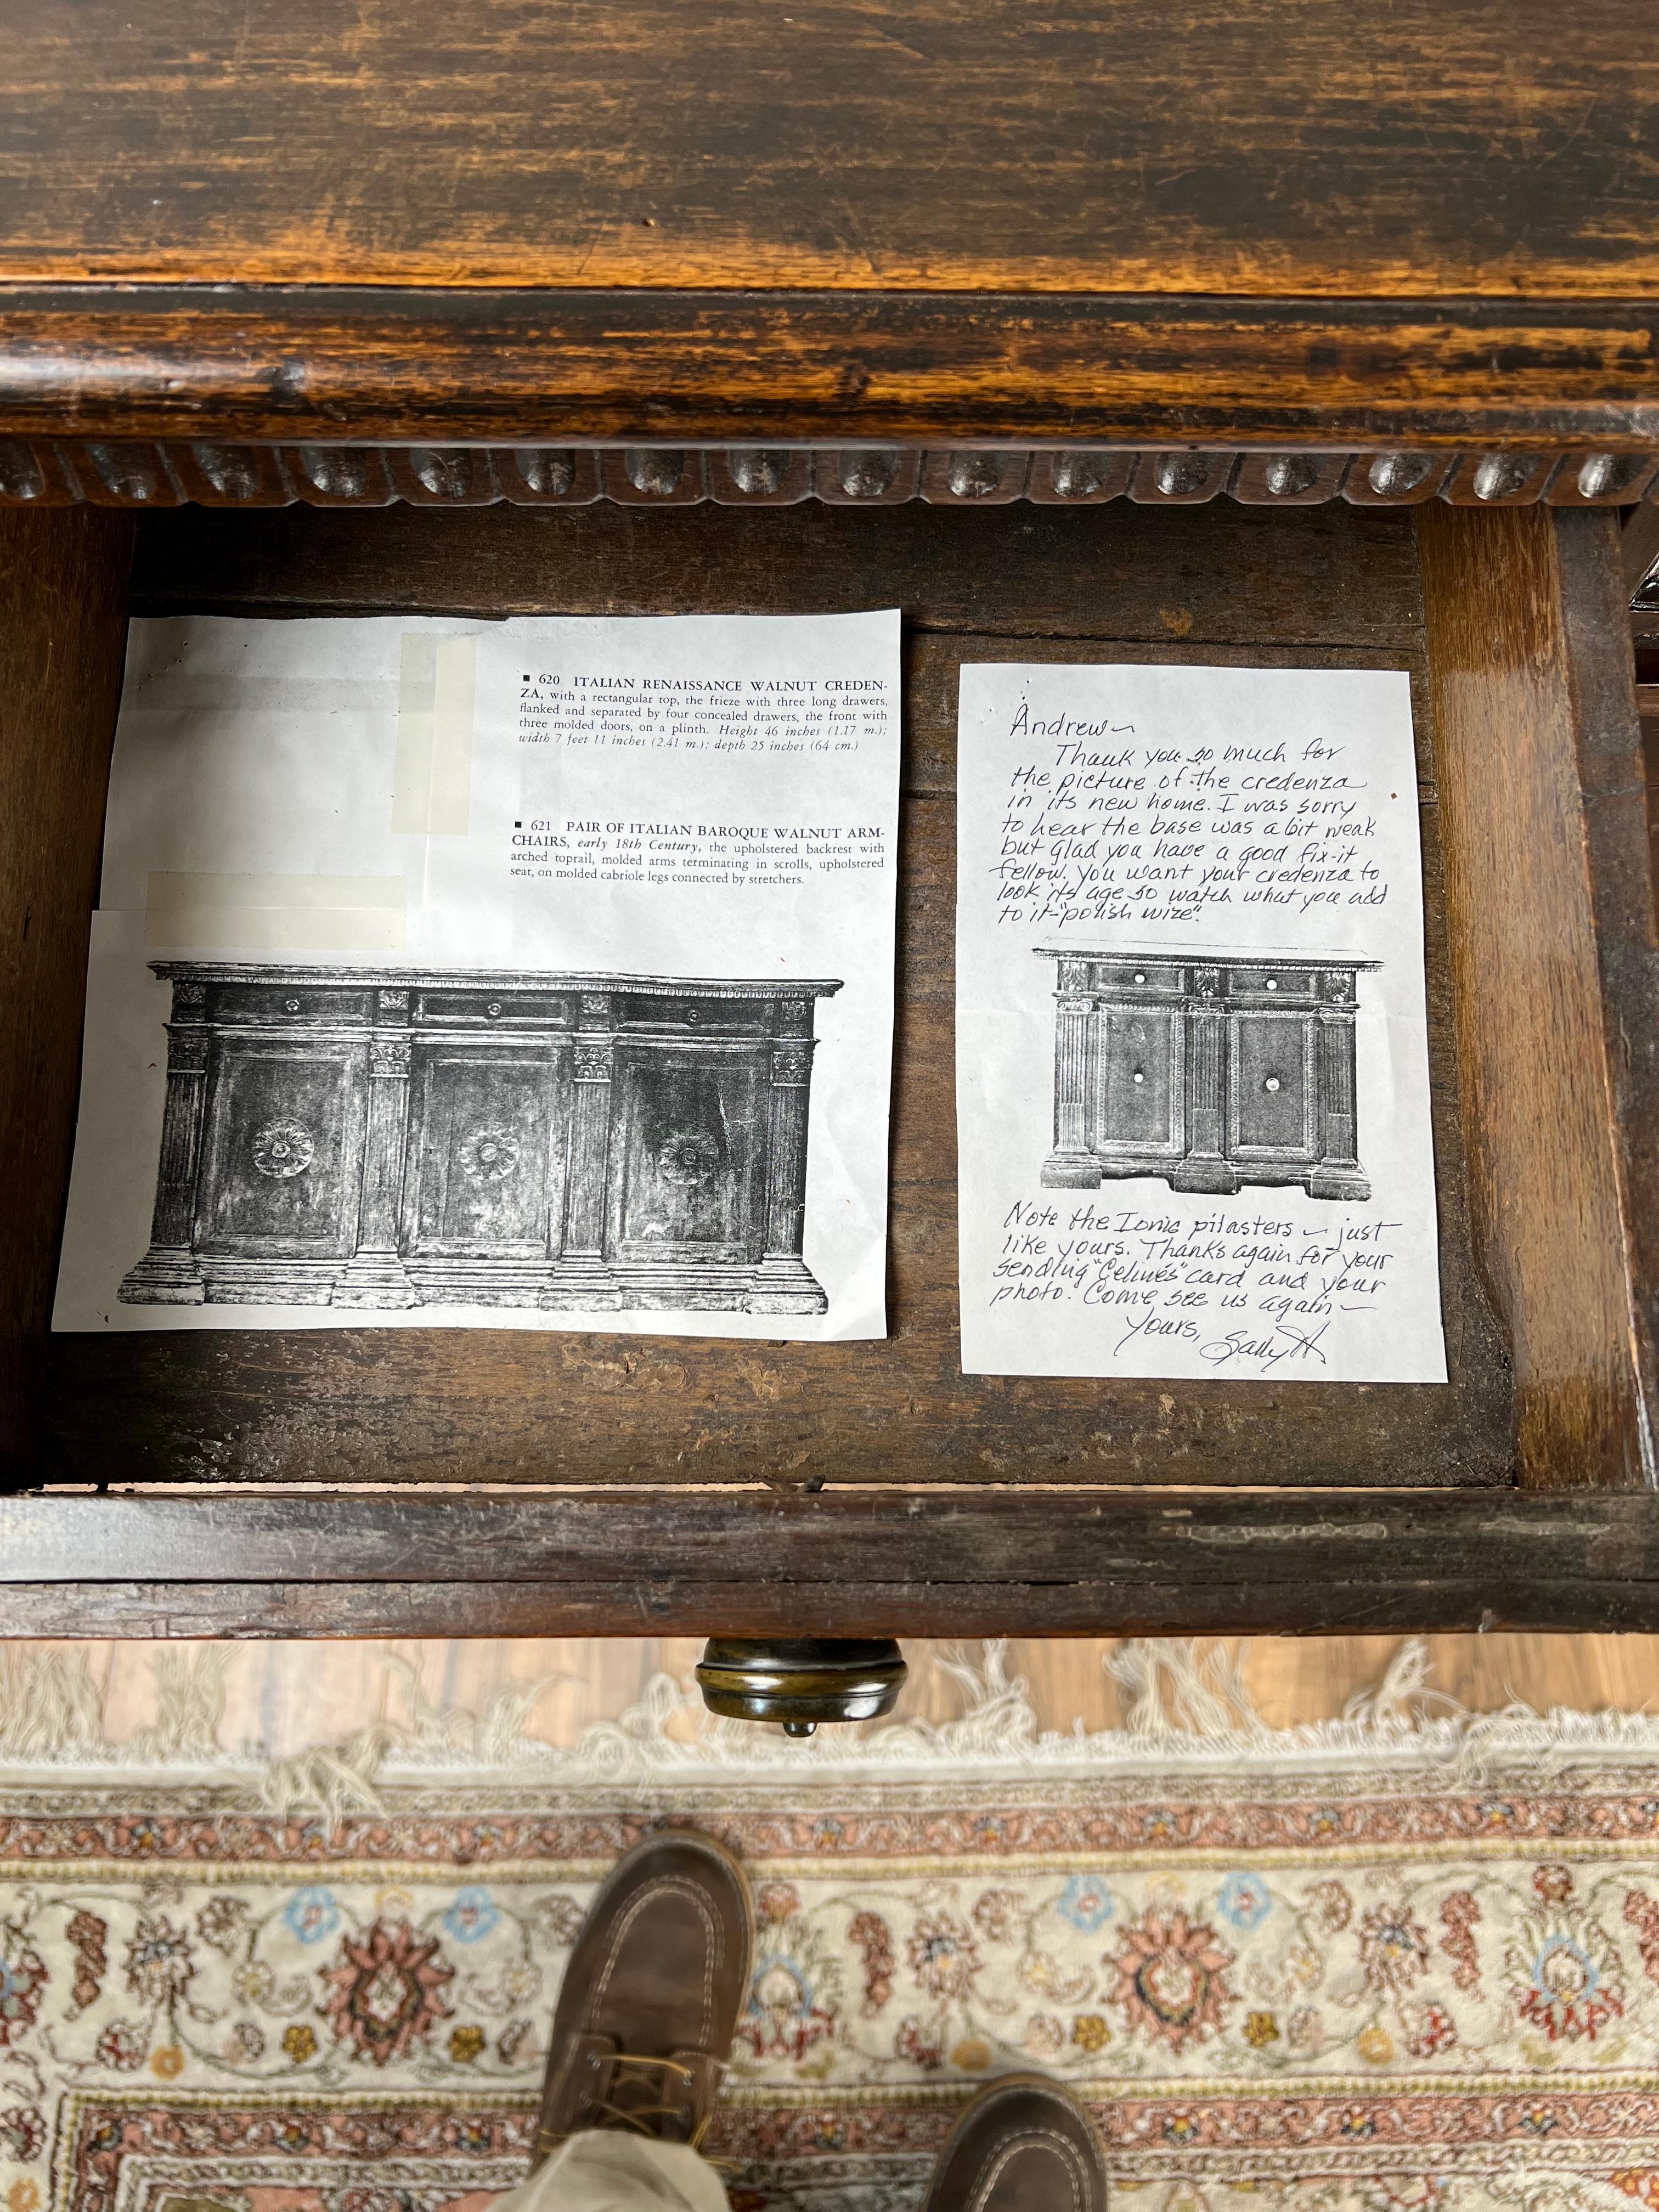 ■ 620 ITALIAN RENAISSANCE WALNUT CREDEN-
ZA, with a rectangular top, the frieze with three long drawers,
flanked and separated by four concealed drawers, the front with
three molded doors, on a plinth. Height 46 inches (1.17 m.);
width 7 feet 11 inches (2.41 m.); depth 25 inches (64 cm.)
■ 621 PAIR OF ITALIAN BAROQUE WALNUT ARM-
CHAIRS, early 18th Century, the upholstered backrest with
arched toprail, molded arms terminating in scrolls, upholstered
seat, on molded cabriole legs connected by stretchers.
Andrew~
Thank you so much for
the picture of the credenza
in its new home. I was sorry
to hear the base was a bit weak
but glad you have a good fix-it
fellow. You want your credenza to
look its age so watch what you add
to it-"polish wize".
Note the Ionic pilasters ~ just
like yours. Thanks again for your
sending "Celine's" card and your
photo. Come see us again—
Yours, Sally H